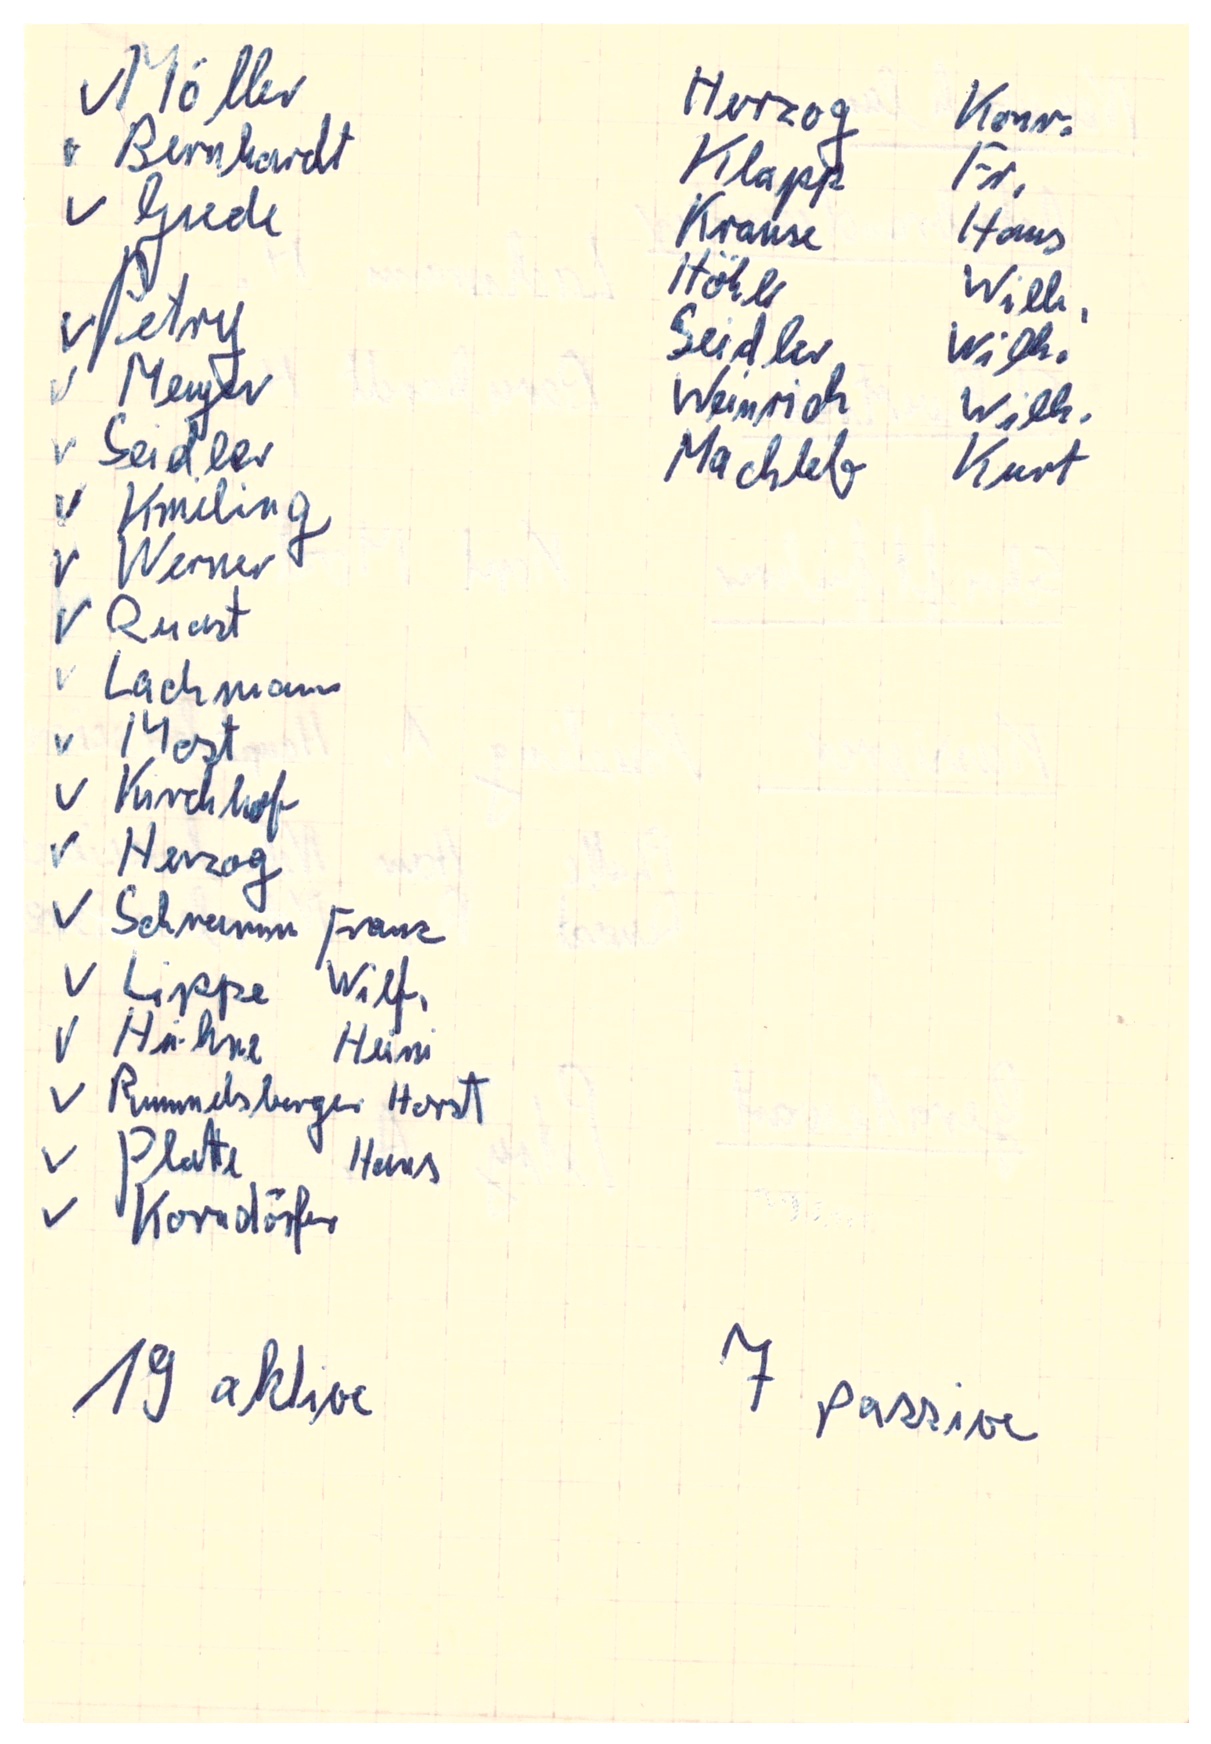 ✓ Möller
✓ Bernhardt
✓ Grede
✓ Petry
✓ Menger
✓ Seidler
✓ Kmiling
✓ Werner
✓ Quast
✓ Lachmann
✓ Most
✓ Kirchhof
✓ Herzog
✓ Schramm Franz
✓ Lippe Wilf.
✓ Hühne Heini
✓ Rummelsberger Horst
✓ Platte Hans
✓ Korndörfer
19 aktive
Herzog Konr.
Klapp Fr.
Krause Hans
Höhle Wilh.
Seidler Wilh.
Weinrich Wilh.
Machleb Kurt
7 passive